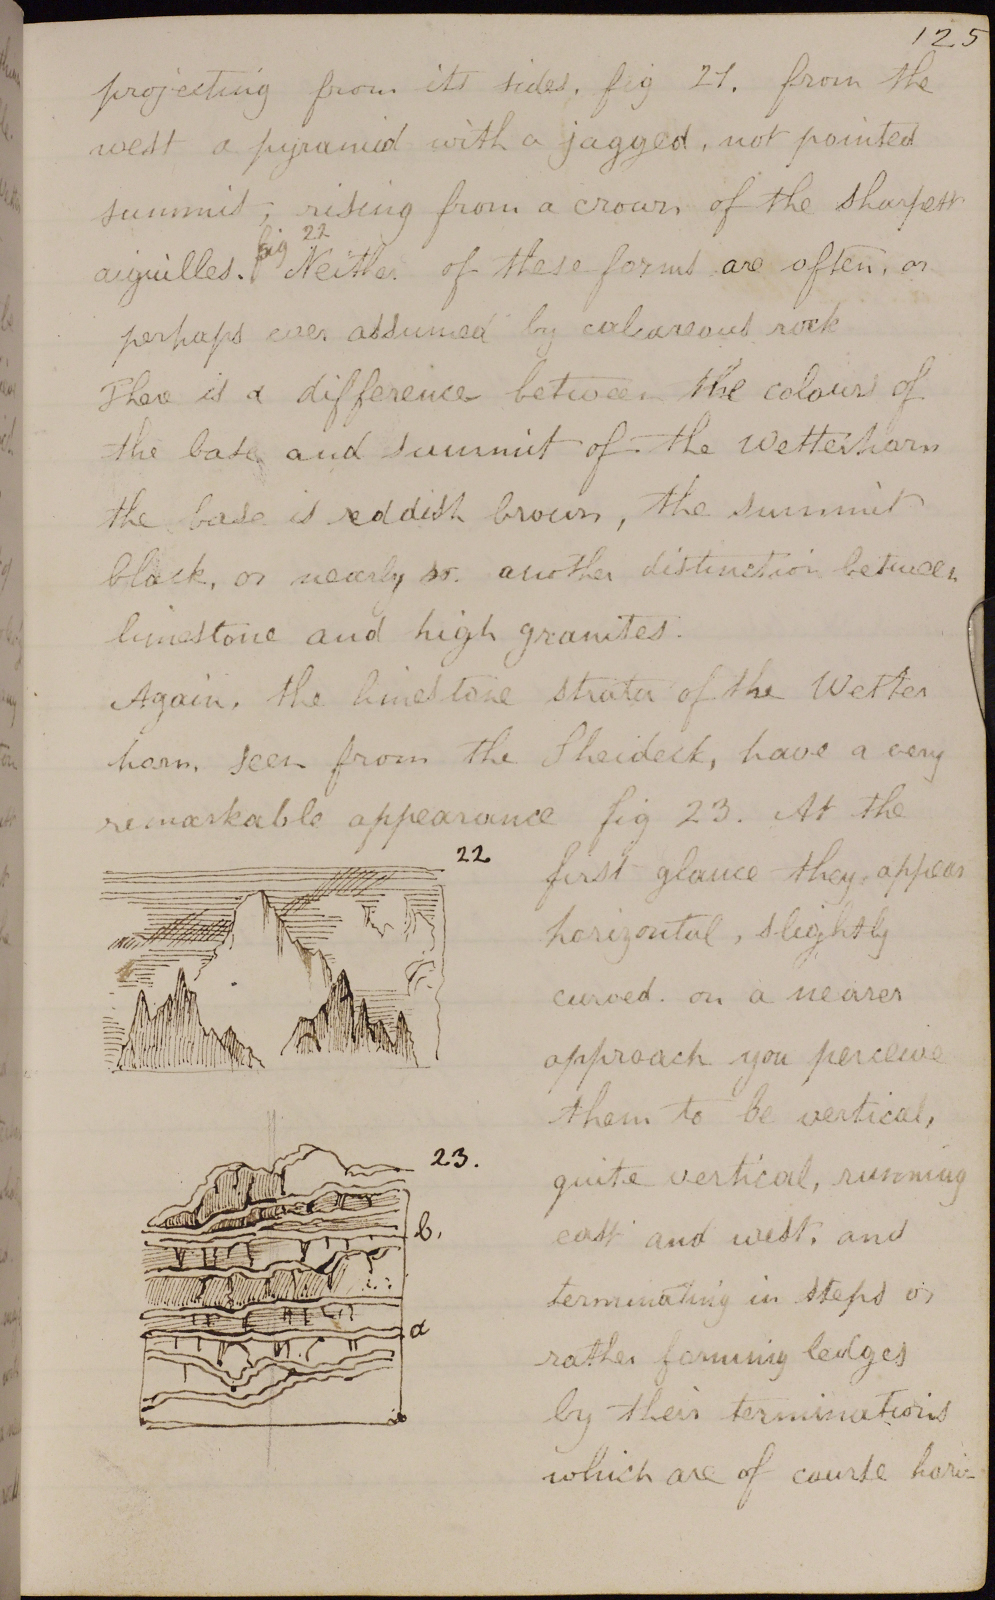 125
projecting from its sides, fig 21. from the
west a pyramid with a jagged, not pointed
summit, rising from a crown of the sharpest
fig 22
aiguilles. Neither of these forms are often, or
perhaps ever assumed by calcareous rock
There is a difference between the colours of
the base and summit of the Wetterhorn
the base is reddish brown, the summit
black, or nearly so. another distinction between
limestone and high granites.
Again, the limestone strata of the Wetter
horn, seen from the Sheideck, have a very
remarkable appearance fig 23. At the
22
first glance they appear
horizontal, slightly
curved. on a nearer
approach you perceive
them to be vertical,
23.
quite vertical, running
b.
east and west, and
terminating in steps or
a
rather forming ledges
by their terminations
which are of course horiz